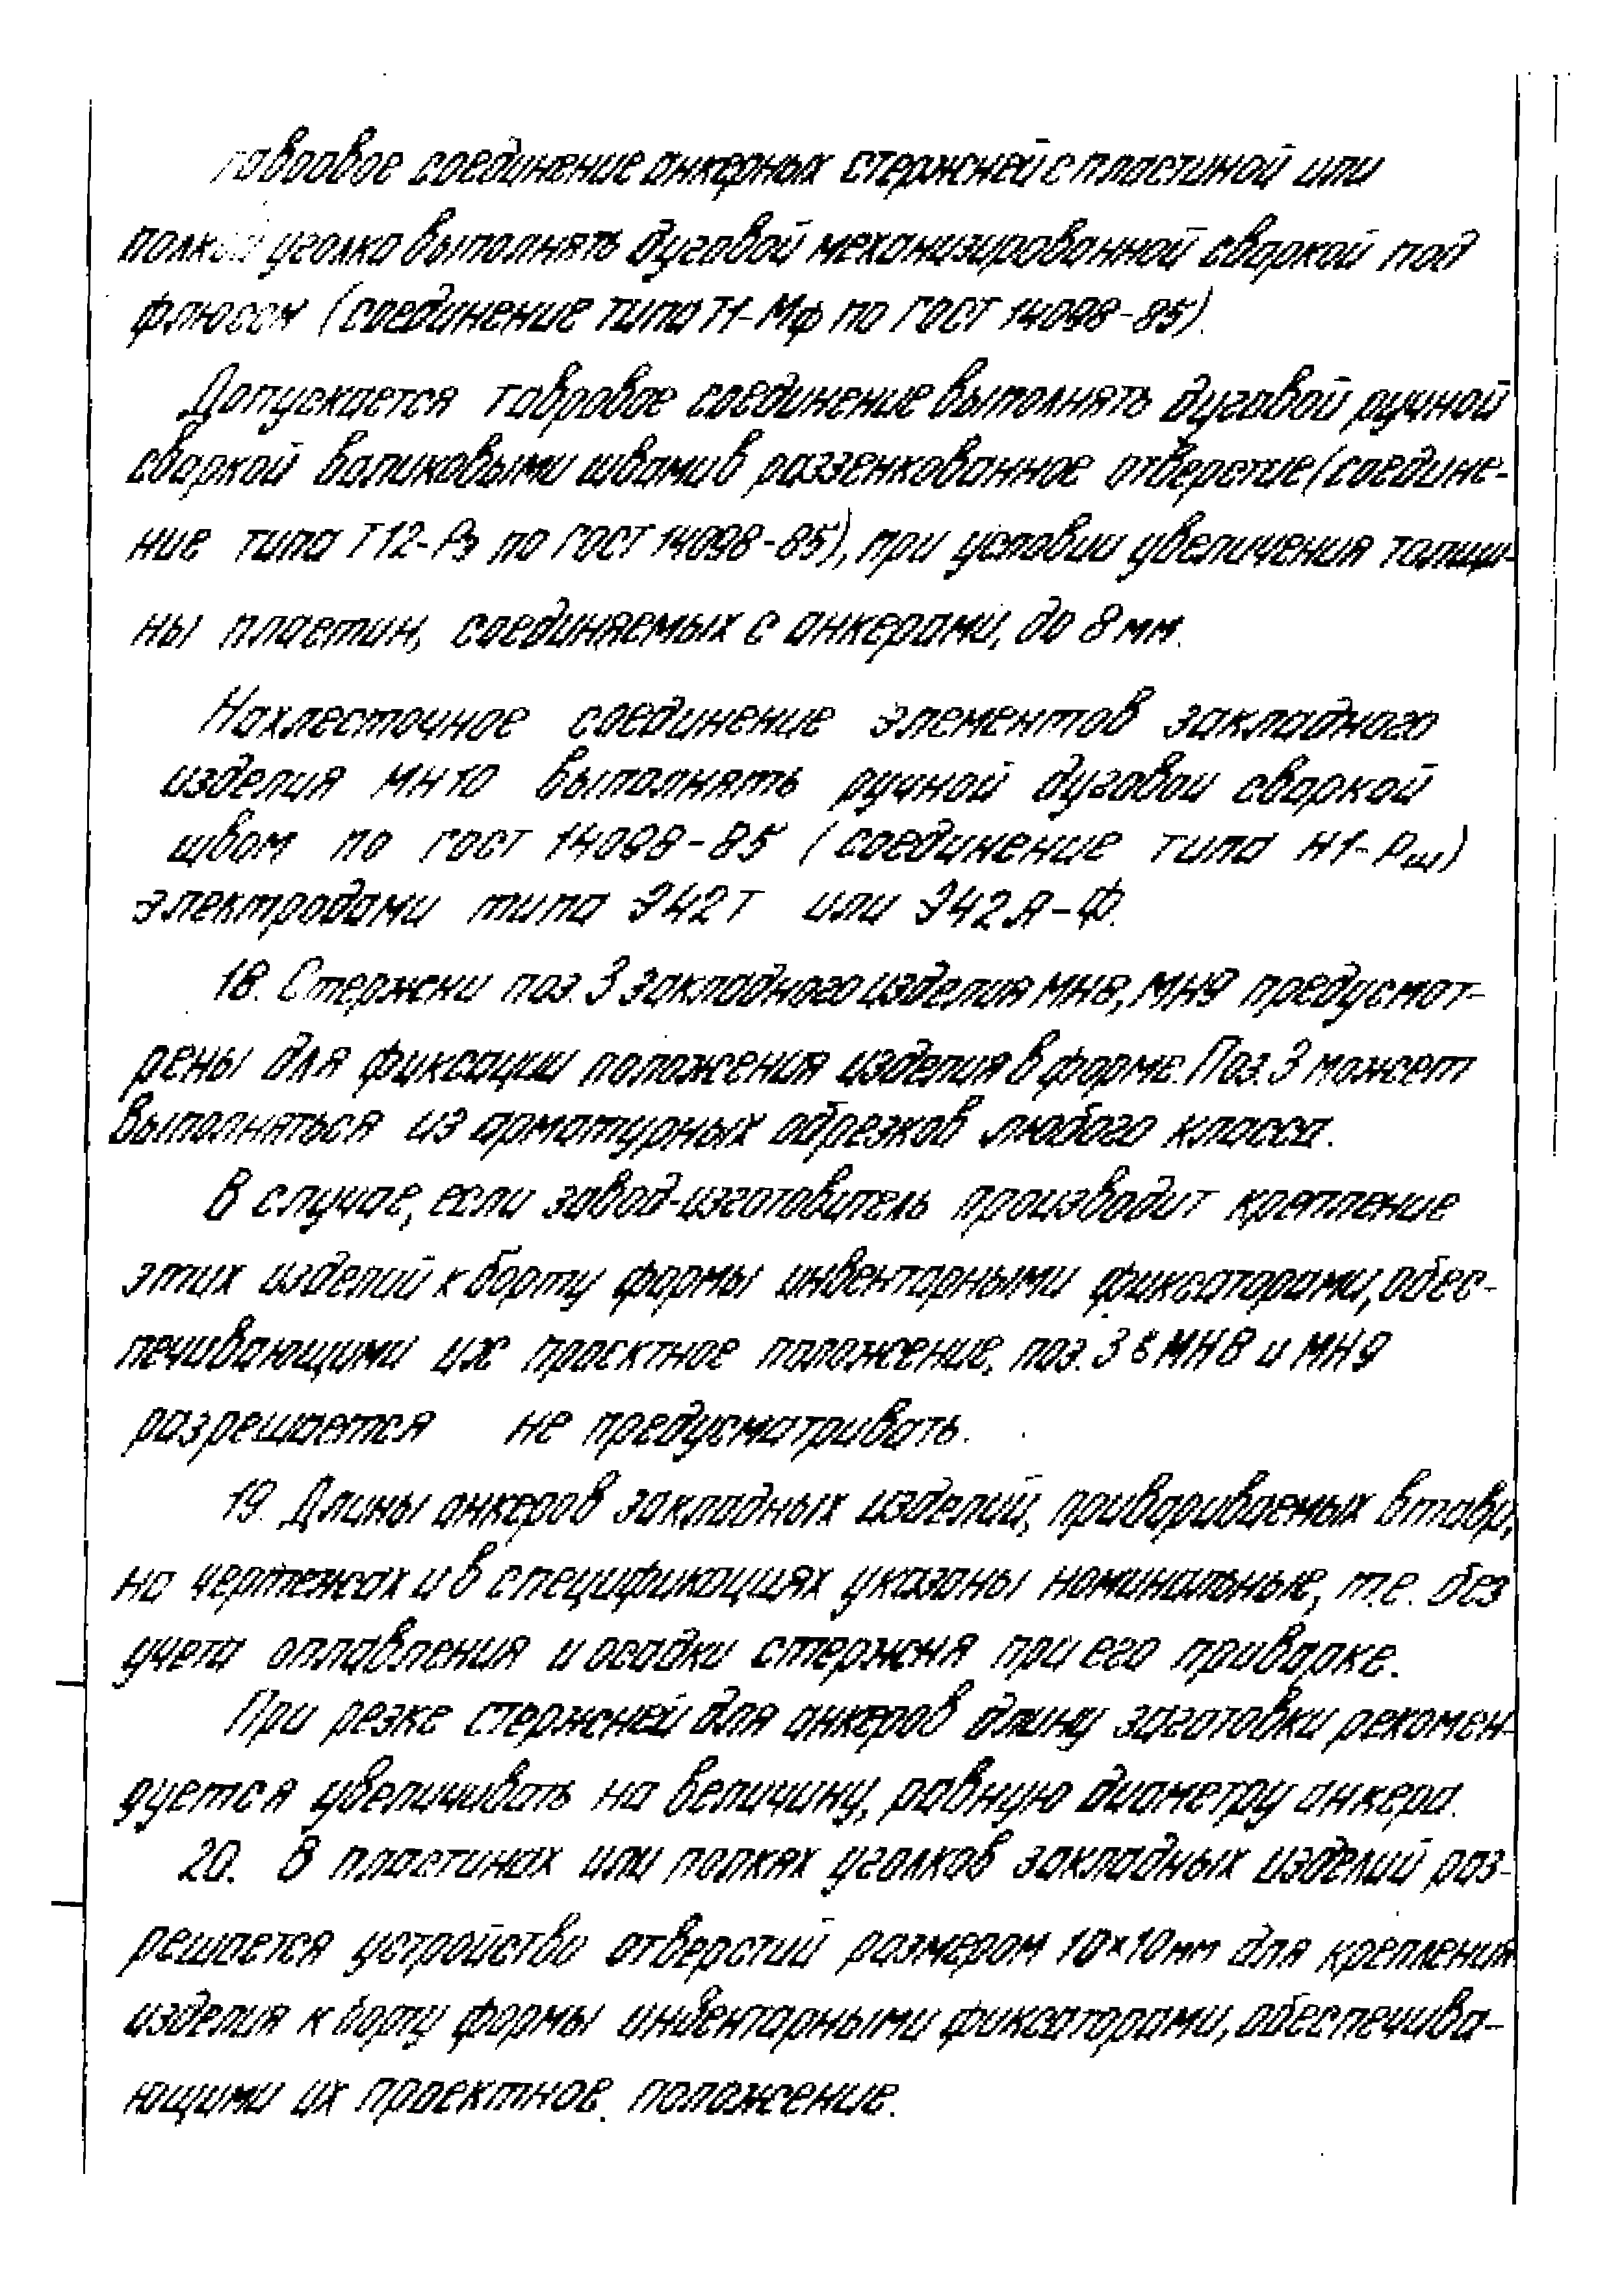 Тавровое соединение анкерных стержней с пластиной или
полкой уголка выполнять дуговой механизированной сваркой под
флюсом (соединение типа Т1-Мф по ГОСТ 14098-85).
Допускается тавровое соединение выполнять дуговой ручной
сваркой валиковыми швами в раззенкованное отверстие (соедине-
ние типа Т12-Рз по ГОСТ 14098-85), при условии увеличения толщи-
ны пластин, соединяемых с анкерами, до 8 мм.
Нахлесточное соединение элементов закладного
изделия МН10 выполнять ручной дуговой сваркой
швом по ГОСТ 14098-85 (соединение типа Н1-Рш)
электродами типа Э42Т или Э42А-Ф.
18. Стержни поз. 3 закладного изделия МН8, МН9 предусмот-
рены для фиксации положения изделия в форме. Поз. 3 может
выполняться из арматурных обрезков любого класса.
В случае, если завод-изготовитель производит крепление
этих изделий к борту формы инвентарными фиксаторами, обес-
печивающими их проектное положение, поз. 3 в МН8 и МН9
разрешается не предусматривать.
19. Длины анкеров закладных изделий, привариваемых втавр,
на чертежах и в спецификациях указаны номинальные, т.е. без
учета оплавления и осадки стержня при его приварке.
При резке стержней для анкеров длину заготовки рекомен-
дуется увеличивать на величину, равную диаметру анкера.
20. В пластинах или полках уголков закладных изделий раз-
решается устройство отверстий размером 10×10мм для крепления
изделия к борту формы инвентарными фиксаторами, обеспечива-
ющими их проектное положение.